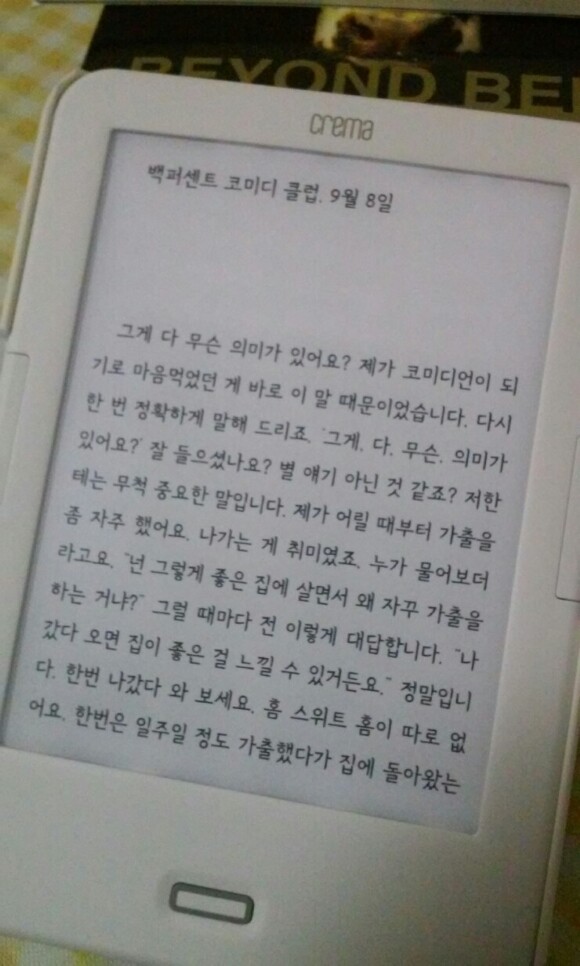 BEYOND BEL
crema
백퍼센트 코미디 클럽. 9월 8일
그게 다 무슨 의미가 있어요? 제가 코미디언이 되
기로 마음먹었던 게 바로 이 말 때문이었습니다. 다시
한 번 정확하게 말해 드리죠. '그게. 다. 무슨. 의미가
있어요?' 잘 들으셨나요? 별 얘기 아닌 것 같죠? 저한
테는 무척 중요한 말입니다. 제가 어릴 때부터 가출을
좀 자주 했어요. 나가는 게 취미였죠. 누가 물어보더
라고요. "넌 그렇게 좋은 집에 살면서 왜 자꾸 가출을
하는 거냐?" 그럴 때마다 전 이렇게 대답합니다. "나
갔다 오면 집이 좋은 걸 느낄 수 있거든요." 정말입니
다. 한번 나갔다 와 보세요. 홈 스위트 홈이 따로 없
어요. 한번은 일주일 정도 가출했다가 집에 돌아왔는